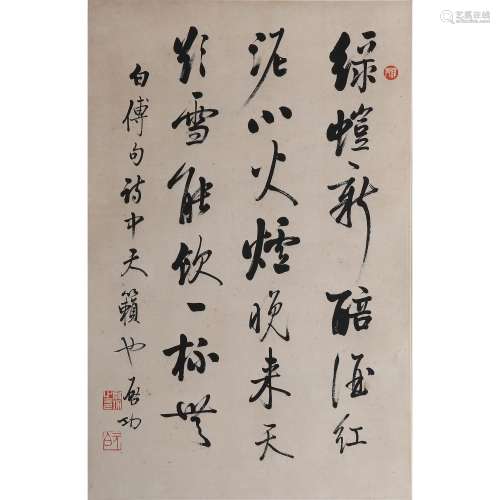 綠螘新醅酒紅
泥小火爐晚来天
欲雪能飲一杯無
白傅句詩中天籟也 启功